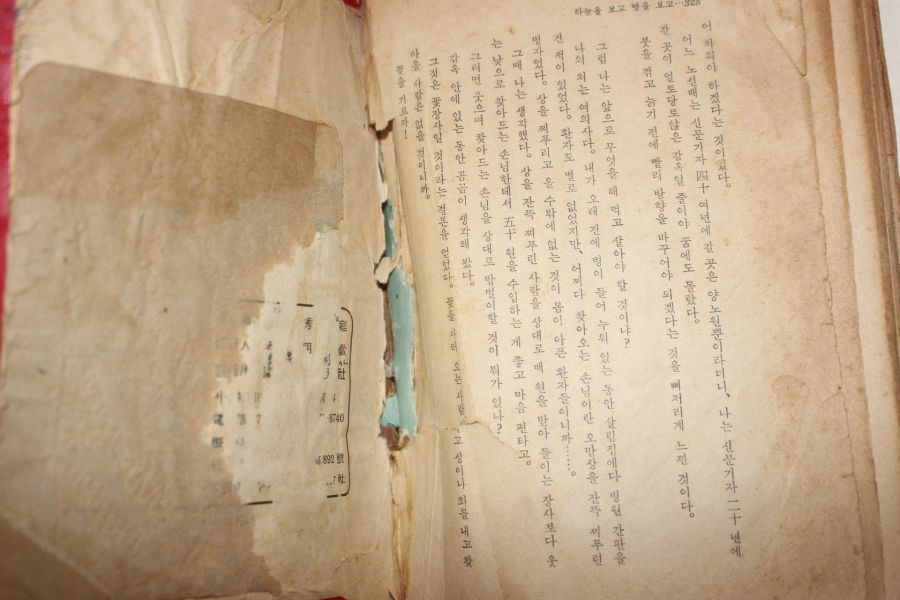 하늘을 보고 땅을 보고…328
어 치워야 하겠다는 것이었다.
어느 노선배는 신문기자 四十 여년에 갈 곳은 양노원뿐이라더니, 나는 신문기자 二十 년에
갈 곳이 얼토당토않은 감옥일 줄이야 꿈에도 몰랐다.
붓을 꺾고 늙기 전에 빨리 방향을 바꾸어야 되겠다는 것을 뼈저리게 느낀 것이다.
그럼 나는 앞으로 무엇을 해 먹고 살아야 할 것이냐?
나의 처는 여의사다. 내가 오래 전에 병이 들어 누워 있는 동안 살림집에다 병원 간판을
건 적이 있었다. 환자도 별로 없었지만, 어쩌다 찾아오는 손님이란 오만상을 잔뜩 찌푸린
병자였다. 상을 찌푸리고 올 수밖에 없는 것이 몸이 아픈 환자들이니까……。
그때 나는 생각했다. 상을 잔뜩 찌푸린 사람을 상대로 백 원을 받아 들이는 장사보다 웃
는 낯으로 찾아드는 손님한테서 五十 원을 수입하는 게 좋고 마음 편타고.
그러면 웃으며 찾아드는 손님을 상대로 밥벌이할 것이 뭐가 있나?
감옥 안에 있는 동안 곰곰이 생각해 봤다.
그것은 꽃장사일 것이라는 결론을 얻었다. 꽃을 사러 오는 사람 고 성이나 화를 내고 찾
아올 사람은 없을 것이니까.
꽃을 기르자!
社
8740
892 號
社
秀 明
人